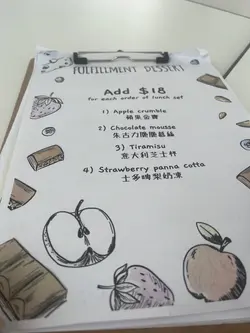 FULFILLMENT DESSERT
Add $18
for each order of lunch set
1) Apple crumble
蘋果金寶
2) Chocolate mousse
3) Tiramisu
意大利芝士杯
4) Strawberry panna cotta
士多啤梨奶凍